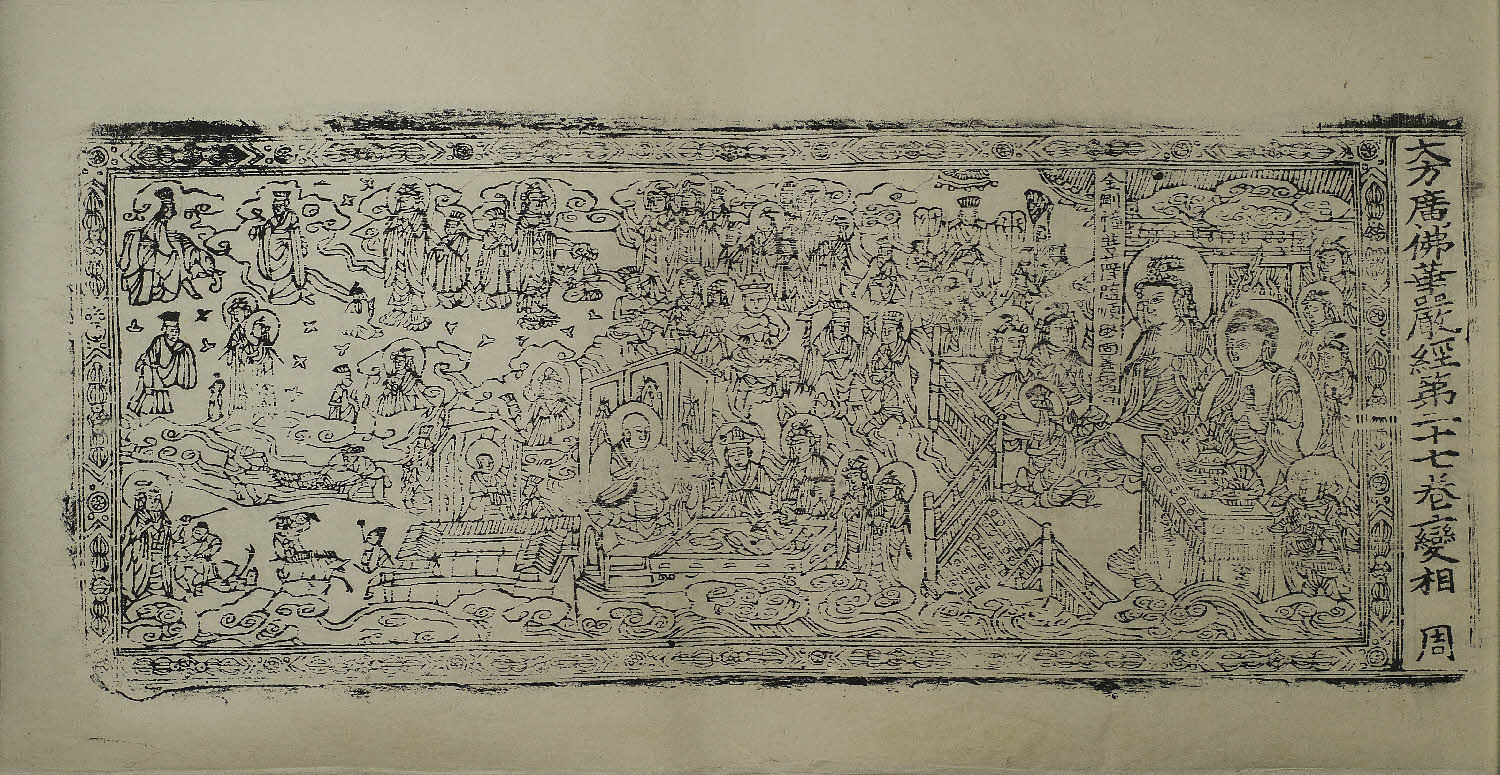 大方廣佛華嚴經第二十七卷之變相 周
金剛幢菩